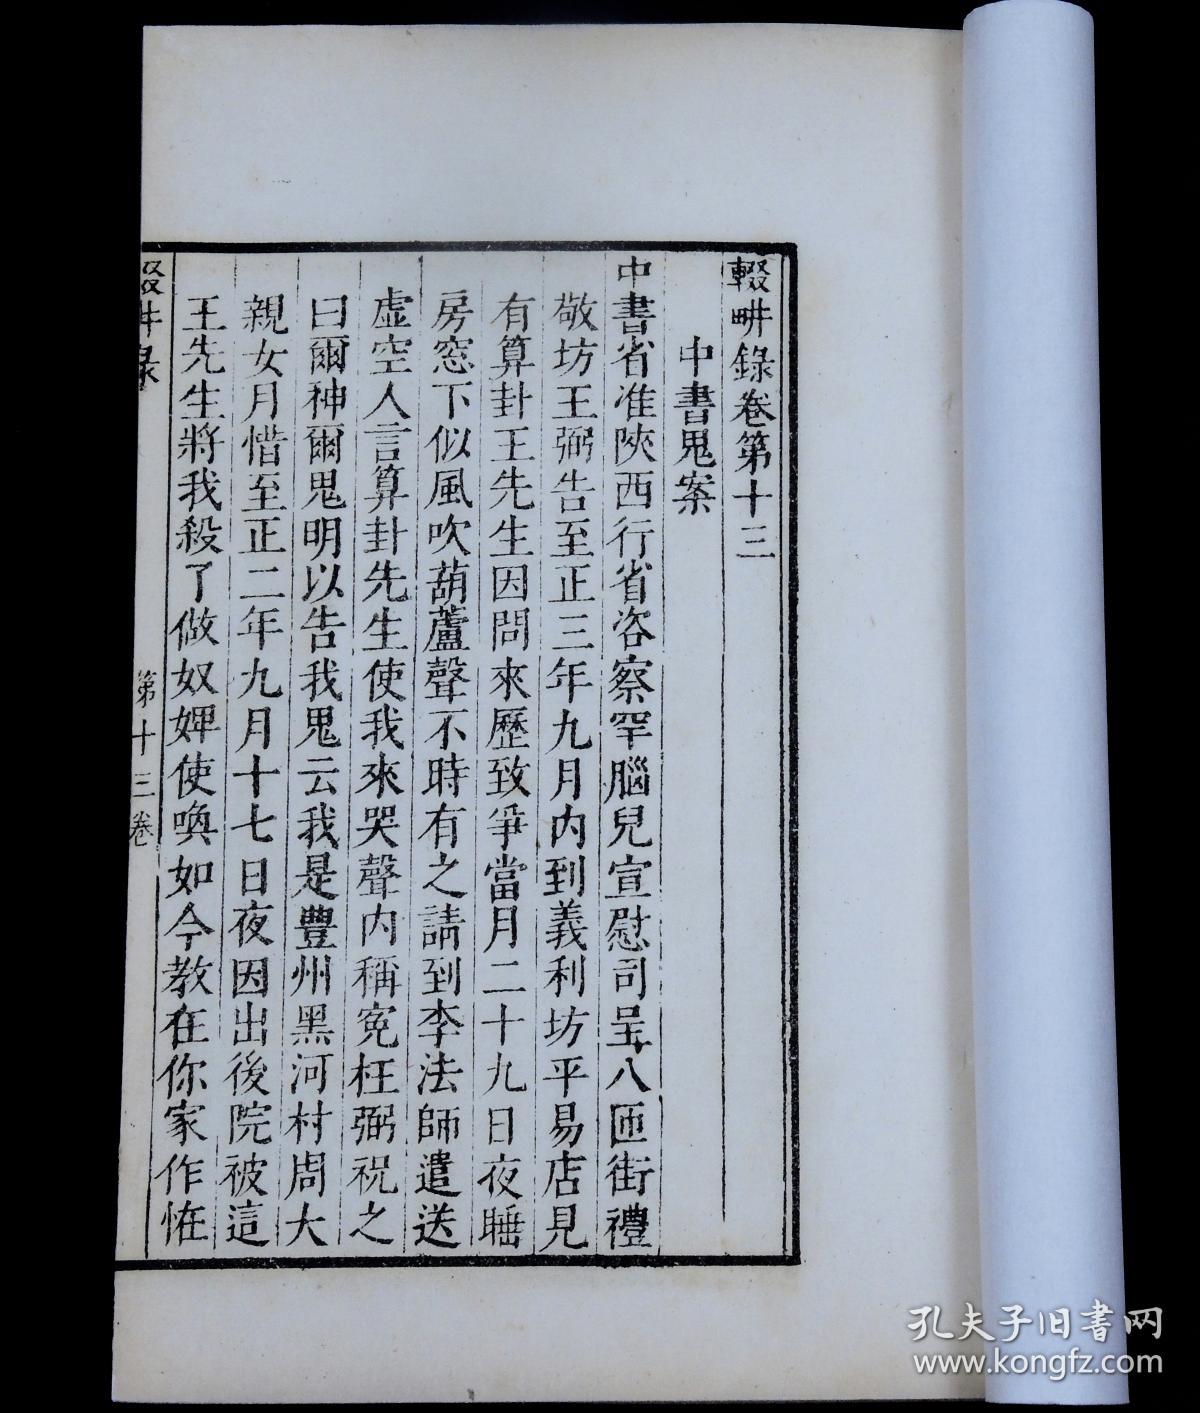 輟畊錄卷第十三
中書鬼案
中書省准陝西行省咨察罕腦兒宣慰司呈八匝街禮
敬坊王弼告至正三年九月內到義利坊平易店見
有算卦王先生因問來歷致爭當月二十九日夜睡
房窓下似風吹葫蘆聲不時有之請到李法師遣送
虛空人言算卦先生使我來哭聲內稱寃枉弼祝之
曰爾神爾鬼明以告我鬼云我是豐州黑河村周大
親女月惜至正二年九月十七日夜因出後院被這
王先生將我殺了做奴婢使喚如今教在你家作恠
輟畊錄
第十三卷
孔夫子旧書网
www.kongfz.com